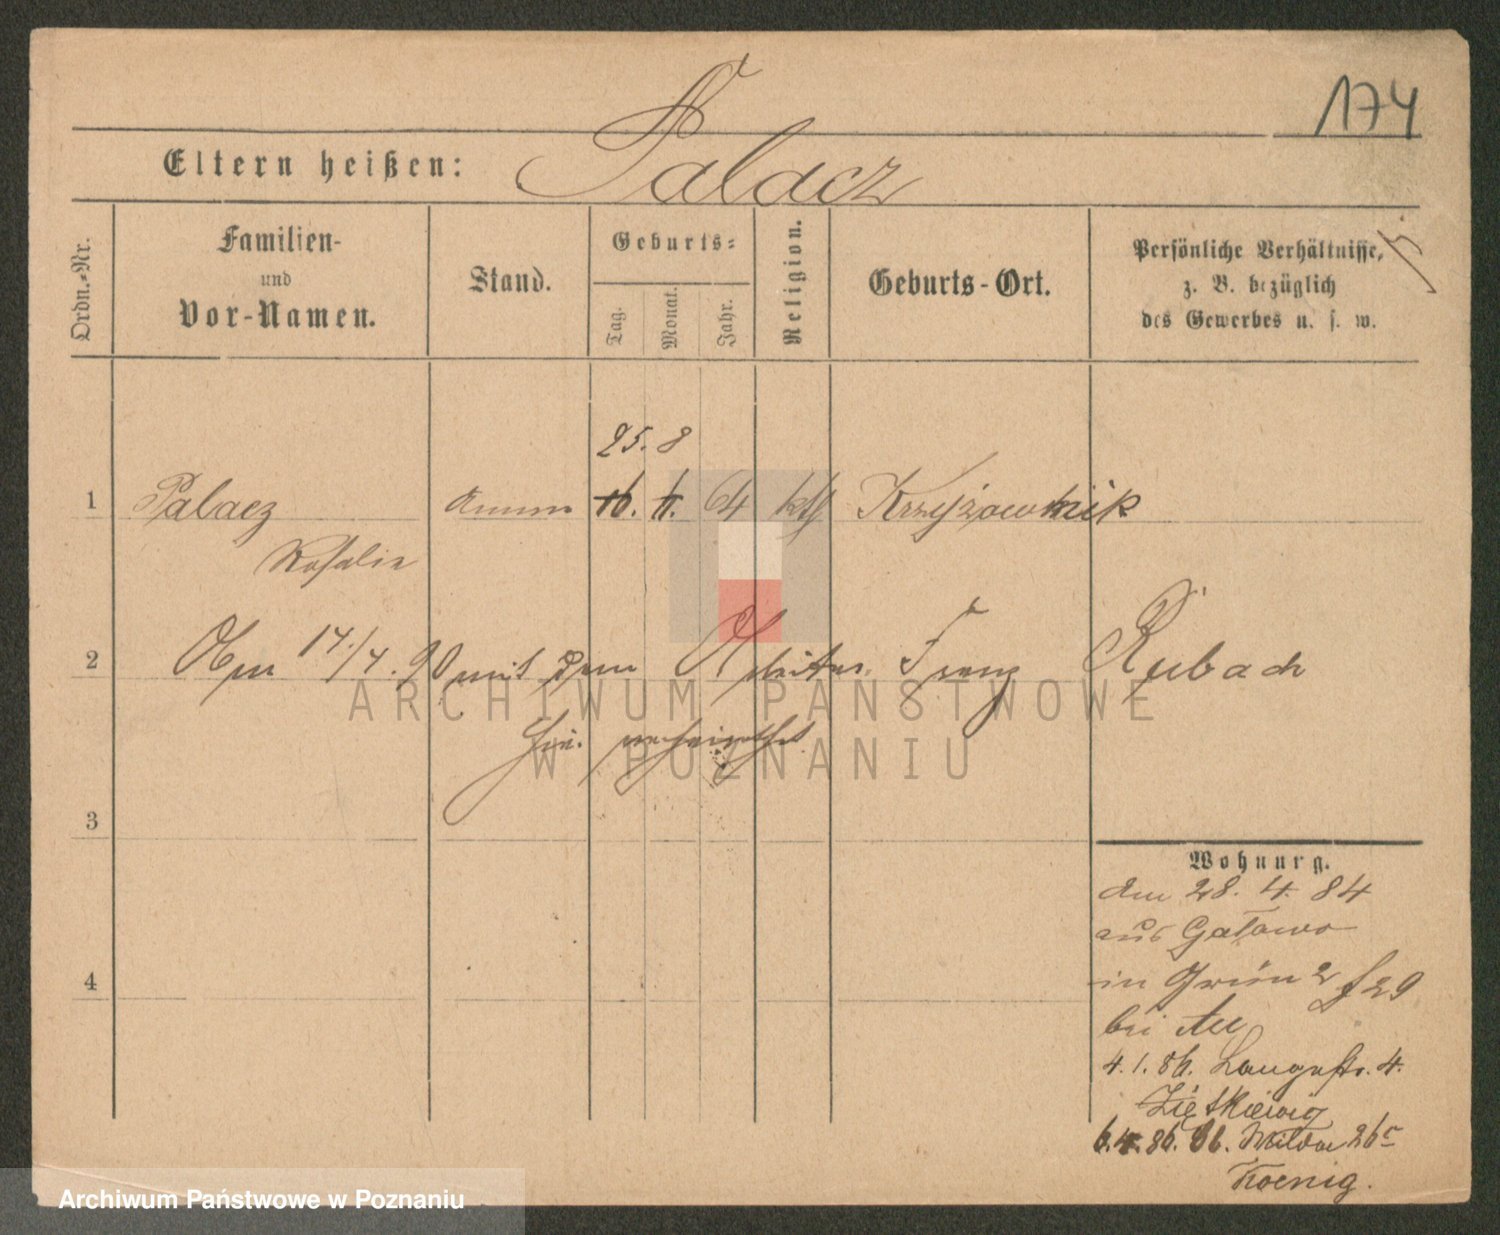 174
Eltern heißen: Palacz
Ordn.-Nr.
Familien-
und
Vor-Namen.
Stand.
Geburts-
Tag.
Monat.
Jahr.
Religion.
Geburts-Ort.
Persönliche Verhältnisse,
z. B. bezüglich
des Gewerbes u. s. w.
25. 8
1 Palacz Amme 16. 11. 64 kth Krzyżownik
Rosalie
2 17./4. 90 mit dem Arbeiter Franz Rubach
hie. verheirathet
3
4
Wohnung.
Am 28. 4. 84
aus Gatowo
in Grün 2 f 29
bei Au
4. 1. 86. Langestr. 4.
Ziętkiewig
6. 4. 86. Wilda 26c
Koenig.
ARCHIWUM PAŃSTWOWE
W POZNANIU
Archiwum Państwowe w Poznaniu